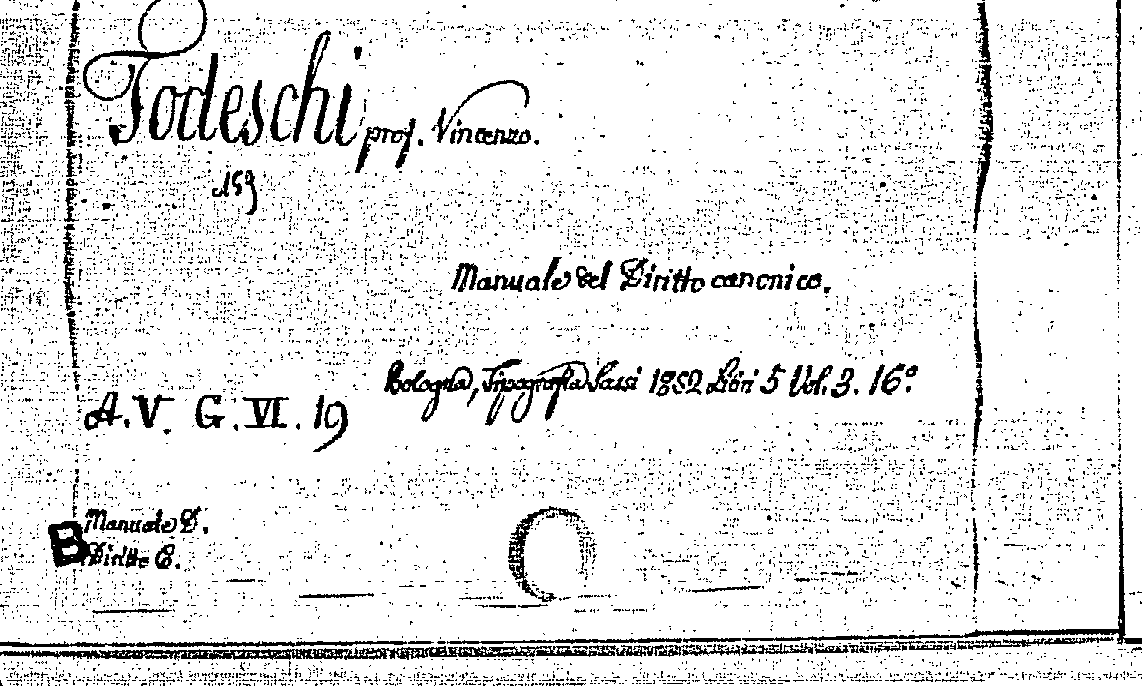 Todeschi prof. Vincenzo.
159
Manuale del Diritto canonico.
Bologna, Tipografia Sassi 1852 Libri 5 Vol. 3. 16°
A. V. G. VI. 19
Manuale D.
B
Diritto C.